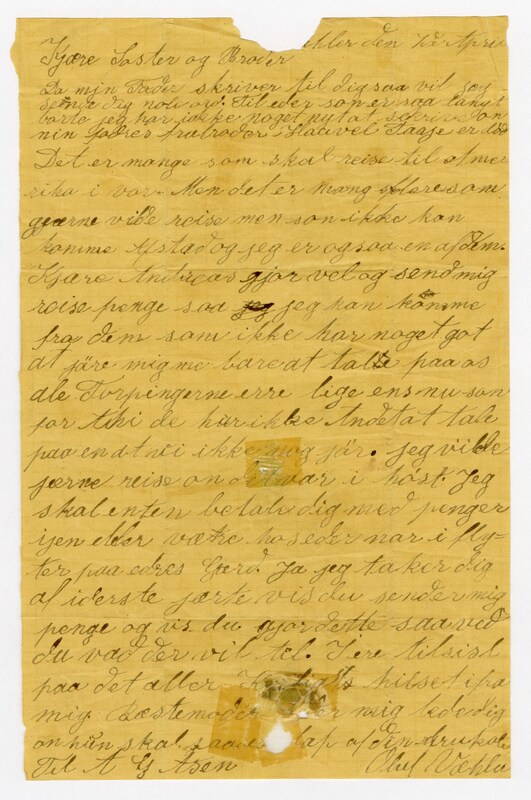 den
Kjære Søster og Broder
Da min Fader skriver til dig saa vil jeg
sende dig nole ord. Til eder som er saa langt
borte jeg har ikke noget nytat skrive om
min Haavel Haaje er død
Det er mange som skal reise til Ame
rika i vor. Men det er mang flere som
gjærne vilde reise men som ikke kan
komme Afstad og jeg er ogsaa en af dem.
Kjære Andreas gjør vel og send mig
reise penge saa jeg jeg kan komme
fra dem som ikke har noget got
at jøre mig me bare at tale paa os
ale Torpingerne erre lige ens nu som
før thi de har ikke Andet at tale
paa end t vi ikke jør. jeg vilde
jærne reise om det var i høst. Jeg
skal enten betale dig med penger
ijen eller være hos eder nar i fly-
ter paa edres Gard. Ja jeg taker dig
af iderste jærte vis du sender mig
penge og vis du gjør dette saa ved
du vad der vil til. I ere tilsist
paa det aller hilset ifra
mig Bæstemoder mig lede dig
om hun skal saa af din
Til A G Asen Oluf Væhler